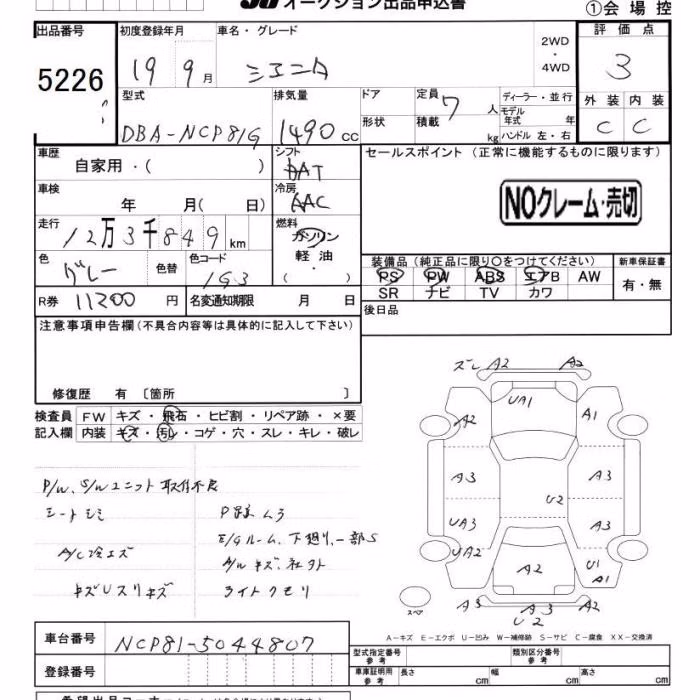 オークション出品申込書
①会場控
出品番号
5226
初度登録年月
19年9月
車名・グレード
シエンタ
2WD
・
4WD
評価点
3
外装 内装
C C
型式
DBA-NCP81G
排気量
1490cc
ドア
形状
定員 7人
積載 kg
ディーラー・並行
モデル年式 年
ハンドル 左・右
車歴
自家用・( )
シフト
AT
セールスポイント (正常に機能するものに限ります)
NOクレーム・売切
車検
年 月( 日)
冷房
AAC
走行
12万3千849km
燃料
ガソリン
軽油
・
( )
色
グレー
色替
色コード
1G3
装備品 (純正品に限り〇をつけてください)
PS PW ABS エアB AW
SR ナビ TV カワ
新車保証書
有・無
R券 11200円
名変通知期限 月 日
後日品
注意事項申告欄(不具合内容等は具体的に記入して下さい)
修復歴 有 〔箇所 〕
検査員記入欄
FW キズ・飛石・ヒビ割・リペア跡・×要
内装 キズ・汚レ・コゲ・穴・スレ・キレ・破レ
P/W、S/Wユニット取付不良
シートシミ
A/C冷エズ
キズUスリキズ
E/Gルーム、下廻り、一部S
A/Wキズ、社外
ライトクモリ
ズレ A2 A2
UA1
A2 A1
A3 A3
U2
UA3 A3
UA2 A2 U1
A1
スペア
A3 A3 A2
U2
A-キズ E-エクボ U-凹み W-補修跡 S-サビ C-腐食 XX-交換済
車台番号 NCP81-5044807
登録番号
型式指定番号
参考
類別区分番号
参考
車庫証明用
参考
長さ cm 幅 cm 高さ cm